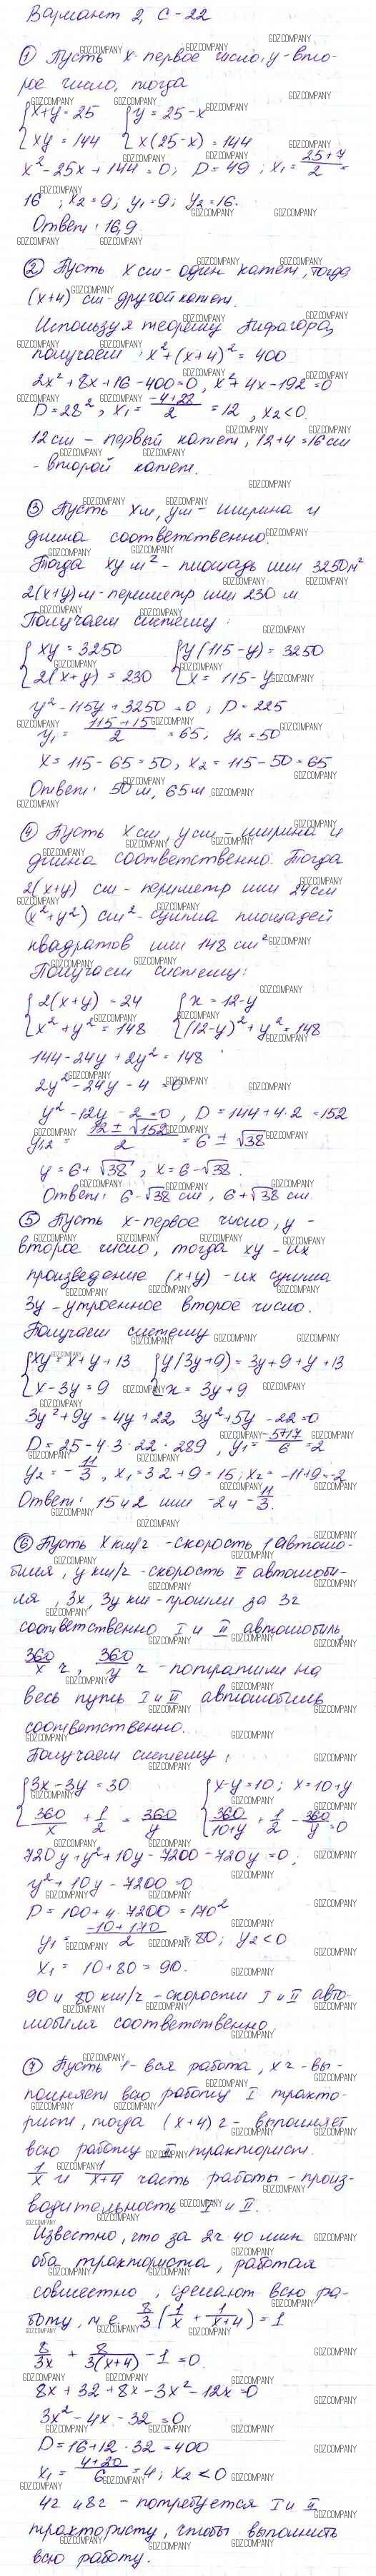 Вариант 2, С-22
① Пусть x-первое число, y-вто-
рое число, тогда
{x+y=25 {y=25-x
{xy=144 {x(25-x)=144
x²-25x+144=0; D=49; x₁=(25+7)/2=
16; x₂=9; y₁=9; y₂=16.
Ответ: 16,9
② Пусть x см-один катет, тогда
(x+4) см-другой катет.
Используя теорему Пифагора,
получаем: x²+(x+4)²=400
2x²+8x+16-400=0, x²+4x-192=0
D=28², x₁=(-4+28)/2=12, x₂<0.
12 см - первый катет, 12+4=16 см
- второй катет.
③ Пусть x м, y м - ширина и
длина соответственно.
Тогда xy м² - площадь или 3250 м²
2(x+y) м-периметр или 230 м
Получаем систему:
{xy=3250 {y(115-y)=3250
{2(x+y)=230 {x=115-y
y²-115y+3250=0; D=225
y₁=(115+15)/2=65, y₂=50
x=115-65=50, x₂=115-50=65
Ответ: 50 м, 65 м
④ Пусть x см, y см - ширина и
длина соответственно. Тогда
2(x+y) см - периметр или 24 см
(x²+y²) см²-сумма площадей
квадратов или 148 см²
Получаем систему:
{2(x+y)=24 {x=12-y
{x²+y²=148 {(12-y)²+y²=148
144-24y+2y²=148
2y²-24y-4=0
y²-12y-2=0, D=144+4·2=152
y₁,₂=(12±√152)/2=6±√38
y=6+√38, x=6-√38.
Ответ: 6-√38 см, 6+√38 см
⑤ Пусть x-первое число, y-
второе число, тогда xy - их
произведение (x+y) - их сумма
3y-утроенное второе число.
Получаем систему
{xy=x+y+13 {y(3y+9)=3y+9+y+13
{x-3y=9 {x=3y+9
3y²+9y=4y+22, 3y²+5y-22=0
D=25-4·3·22=289, y₁=(-5+17)/6=2
y₂=-11/3, x₁=3·2+9=15; x₂=-11+9=-2
Ответ: 15 и 2 или -2 и -11/3.
⑥ Пусть x км/г -скорость I автомо-
биля, y км/г - скорость II автомоби-
ля, 3x, 3y км-прошли за 3г
соответственно I и II автомобиль,
360/x г, 360/y г - потратили на
весь путь I и II автомобиль
соответственно.
Получаем систему:
{3x-3y=30 {x-y=10; x=10+y
{360/x+1/2=360/y {360/(10+y)+1/2-360/y=0
720y+y²+10y-7200-720y=0;
y²+10y-7200=0
D=100+4·7200=170²
y₁=(-10+170)/2=80; y₂<0
x₁=10+80=90.
90 и 80 км/г - скорости I и II авто-
мобиля соответственно.
⑦ Пусть 1-вся работа, x г-вы-
полняет всю работу I тракто-
рист, тогда (x+4) г - выполняет
всю работу II тракторист.
1/x и 1/(x+4) часть работы - произ-
водительность I и II.
Известно, что за 2г 40 мин
оба тракториста, работая
совместно, сделают всю ра-
боту, т.е. 8/3(1/x+1/(x+4))=1
8/3x+8/3(x+4)-1=0
8x+32+8x-3x²-12x=0
3x²-4x-32=0
D=16+12·32=400
x₁=(4+20)/6=4; x₂<0
4г и 8г - потребуется I и II
трактористу, чтобы выполнить
всю работу.
GDZ.COMPANY